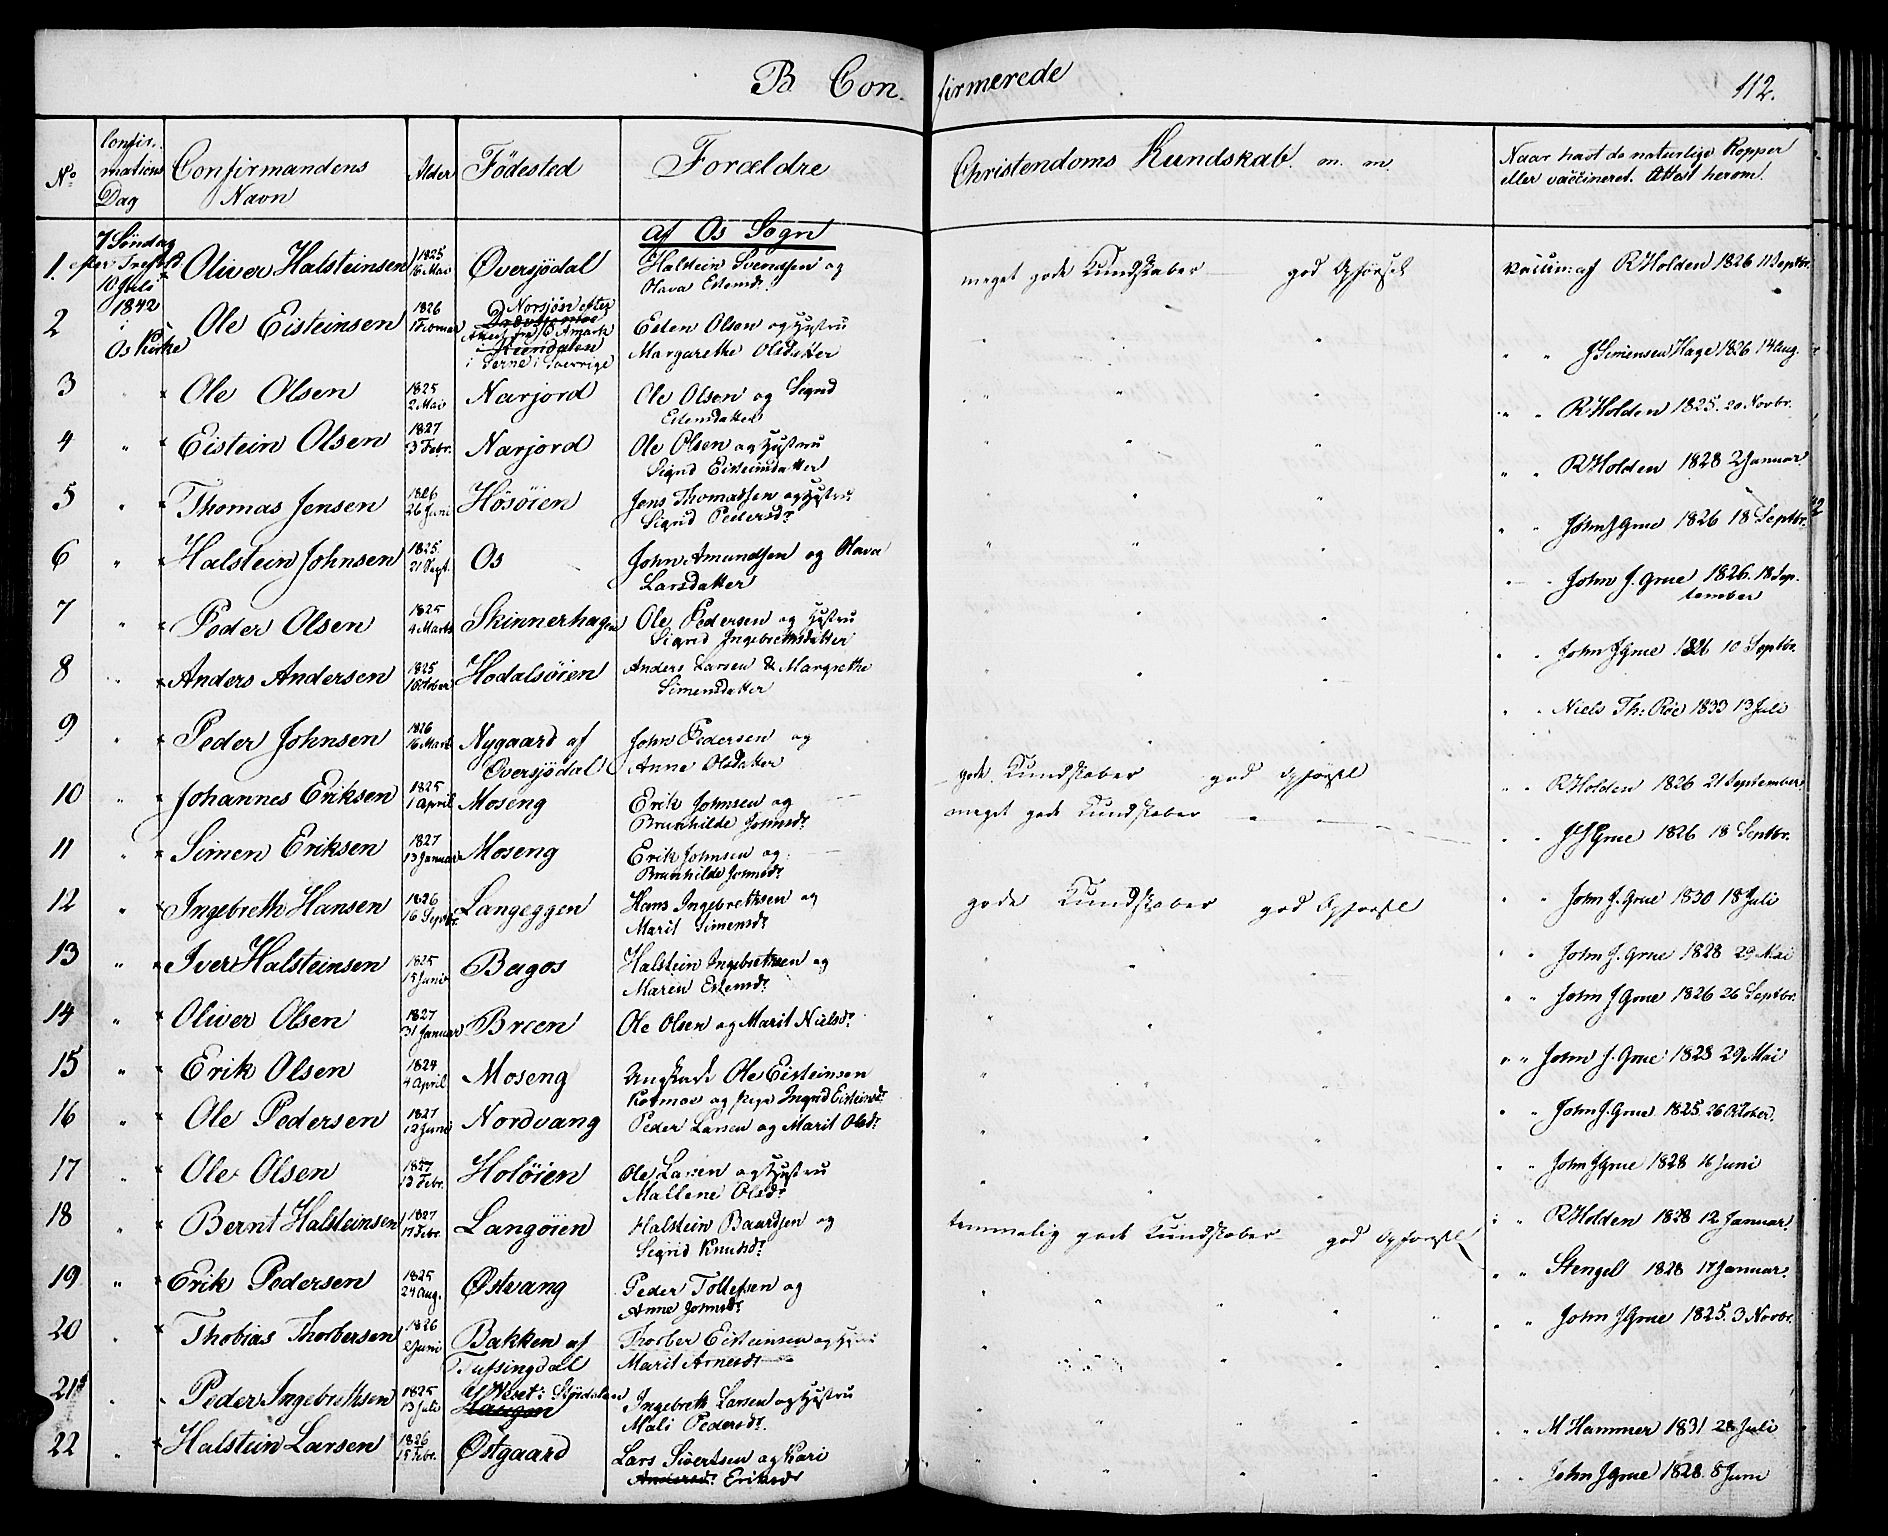 B. Con- firmerede
112.
No
Confir-
mations
Dag
Confirmandens
Navn
Alder
Födested
Forældre
Christendoms Kundskab. m. m.
Naar havt de naturlige Kopper
eller vaccineret. Attest herom.
af Os Sogn
1. 7 Söndag efter Trefold. 10 Juli 1842 i Os Kirke
Oliver Halsteinsen 1825 16 Mai Översjödal Halstein Svendsen og
Olava Estensdr.
meget gode Kundskaber god Opförsel vaccin: af R Holden 1826 11 Septbr.
2 Ole Eisteinsen 1826 Esten Olsen og Hustru
Margarethe Olsdatter
" " J Simensen Hage 1826 14 Aug.
3 " Ole Olsen 1825 2 Mai Narjord Ole Olsen og Sigrid
Estensdatter
" " R Holden 1825. 20 Novbr.
4 " Eistein Olsen 1827 3 Febr. Narjord Ole Olsen og Hustru
Sigrid Eisteinsdatter
" " R Holden 1828 2 Januar
5 " Thomas Jensen 1826 26 Juni Hösöien Jens Thomassen og Hustru
Sigrid Pedersdr.
" " John J Grue 1826 18 Septbr.
6 " Halstein Johnsen 1825 21 Sept. Os John Amundsen og Olava
Larsdatter
" " John J. Grue 1826. 18 Sep-
tember
7 " Peder Olsen 1825 4 Marts Skinnerhagen Ole Pedersen og Hustru
Sigrid Ingebrethsdatter
" " John J Grue 1826 10 Septbr.
8 " Anders Andersen 1825 1 October Hodalsöien Anders Larsen & Margrethe
Simensdatter
" " Niels Th: Röe 1833 13 Juli
9 " Peder Johnsen 1826 16 Marts Nygaard af
Översjödal John Pedersen og
Anne Olsdatter
gode Kundskaber god Opförsel " " R Holden 1826 21 September
10 " Johannes Eriksen 1825 1 April Moseng Erik Johnsen og
Brunhilde Johnsdr.
meget gode Kundskaber " " " " J J Grue 1826 18 Septbr.
11 " Simen Eriksen 1827 13 Januar Moseng Erik Johnsen og
Brunhilde Johnsdr.
12 " Ingebreth Hansen 1826 16 Septbr. Langeggen Hans Ingebrethsen og
Marit Simensdr.
gode Kundskaber god Opförsel " " John J. Grue 1830 18 Juli
13 " Iver Halsteinsen 1825 15 Juni Bagos Halstein Ingebrethsen og
Maren Estensdr.
" " John J. Grue 1828 29 Mai
14 " Oliver Olsen 1827 31 Januar Breen Ole Olsen og Marit Nielsdr.
" " John J Grue 1826 26 Septbr.
15 " Erik Olsen 1824 4 April Moseng Ungkarl Ole Eisteinsen
Kotmoe og Pige Ingrid Eisteinsdr.
" " John J. Grue 1828 29 Mai
16 " Ole Pedersen 1827 12 Juni Nordvang Peder Larsen og Marit Olsdr.
" " John J. Grue 1825. 26 October.
17 " Ole Olsen 1827 13 Febr. Holöien Ole Larsen og Hustru
Mallene Olsdr.
" " John J Grue 1828 16 Juni
18 " Bernt Halsteinsen 1827 17 Febr. Langöien Halstein Baardsen og
Sigrid Knudsdr.
temmelig gode Kundskaber god Opförsel " " R Holden 1828 12 Januar.
19 " Erik Pedersen 1825 24 Aug. Östvang Peder Tollefsen og
Anne Johnsdr.
" " Stengel 1828 17 Januar.
20 " Thobias Thorbersen 1826 2 Juni Bakken af
Tufsingdal Thorber Eisteinsen og
Marit Arnesdr.
" " John J Grue 1825. 3 Novbr.
21 " Peder Ingebrethsen 1825 13 Juli Haugen Ingebreth Larsen og Hustru
Mali Pedersdr.
" " M Hammer 1831 28 Juli
22 " Halstein Larsen 1826 15 Febr. Östgaard Lars Sivertsen og Kari
Andersdr. Eriksdr.
" " John J Grue 1828. 8 Juni